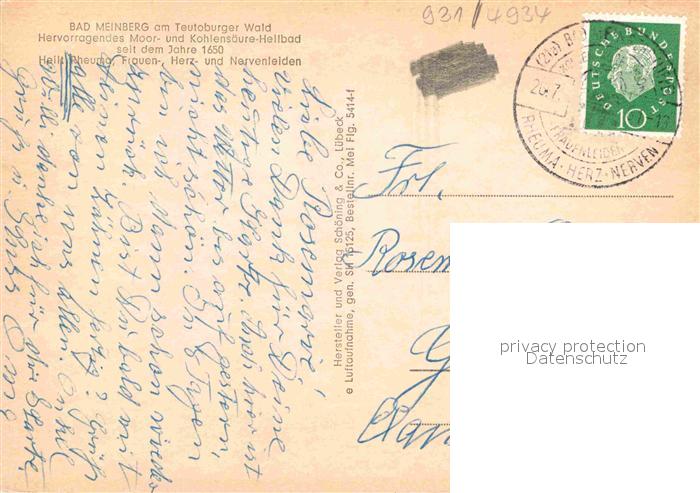 BAD MEINBERG am Teutoburger Wald
Hervorragendes Moor- und Kohlensäure-Heilbad
seit dem Jahre 1650
Heilt Rheuma, Frauen-, Herz- und Nervenleiden
931/4934
DEUTSCHE BUNDESPOST
10
(21a) BAD
20.7.
FRAUENLEIDEN
RHEUMA·HERZ·NERVEN
Liebe Rosemarie,
vielen Dank für Deine
heutige Karte. Auch hier ist
das Wetter bis auf gestern,
nicht schön. In 8 Tagen
bin ich dann schon wieder
zurück. Bist Du bald mit
Deinen Zähnen fertig? Grüß
alle von uns allen. Onkel
Willi
Grüße
Hersteller und Verlag Schöning & Co., Lübeck
e Luftaufnahme, gen. SH 15125, Bestellnr. Mei Fig. 5414-f
Frl.
Rosem
privacy protection
Datenschutz